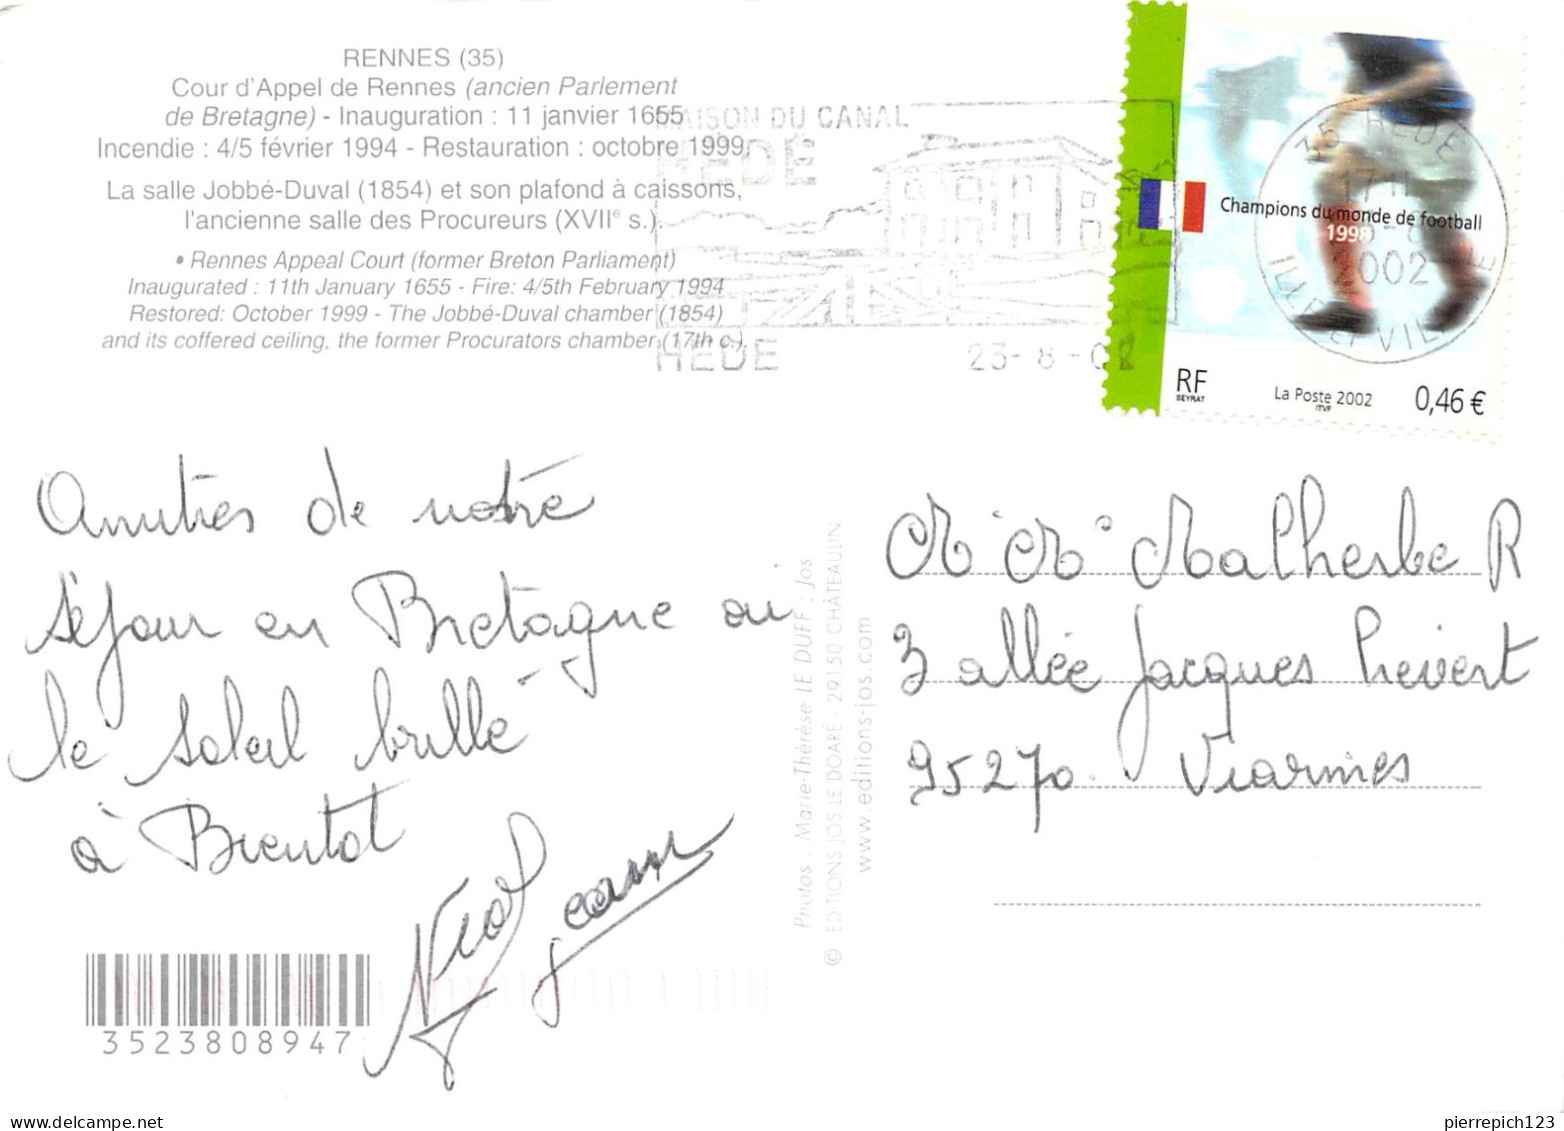 RENNES (35)
Cour d'Appel de Rennes (ancien Parlement
de Bretagne) - Inauguration : 11 janvier 1655
Incendie : 4/5 février 1994 - Restauration : octobre 1999
La salle Jobbé-Duval (1854) et son plafond à caissons,
l'ancienne salle des Procureurs (XVIIe s.).
• Rennes Appeal Court (former Breton Parliament)
Inaugurated : 11th January 1655 - Fire: 4/5th February 1994
Restored: October 1999 - The Jobbé-Duval chamber (1854)
and its coffered ceiling, the former Procurators chamber (17th c.).
MAISON DU CANAL
HEDE
HEDE
23-8-02
35 HEDE
17H
2002
ILLE ET VILAINE
Champions du monde de football
1998
RF
SEYRAT
La Poste 2002
ITVF
0,46 €
Amitiés de notre
séjour en Bretagne ou
le soleil brille
à Bientot
Jeanne
M. Me Malherbe R
3 allée Jacques Prévert
95270. Viarmes
Photos . Marie-Thérèse LE DUFF ; Jos
© EDITIONS JOS LE DOARÉ - 29150 CHÂTEAULIN
www.editions-jos.com
3523808947
pierrepich123